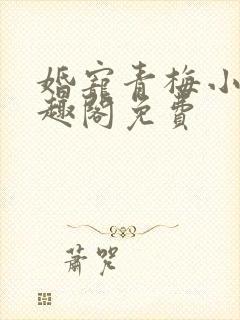 婚宠青梅小
趣阁免费
萧咒